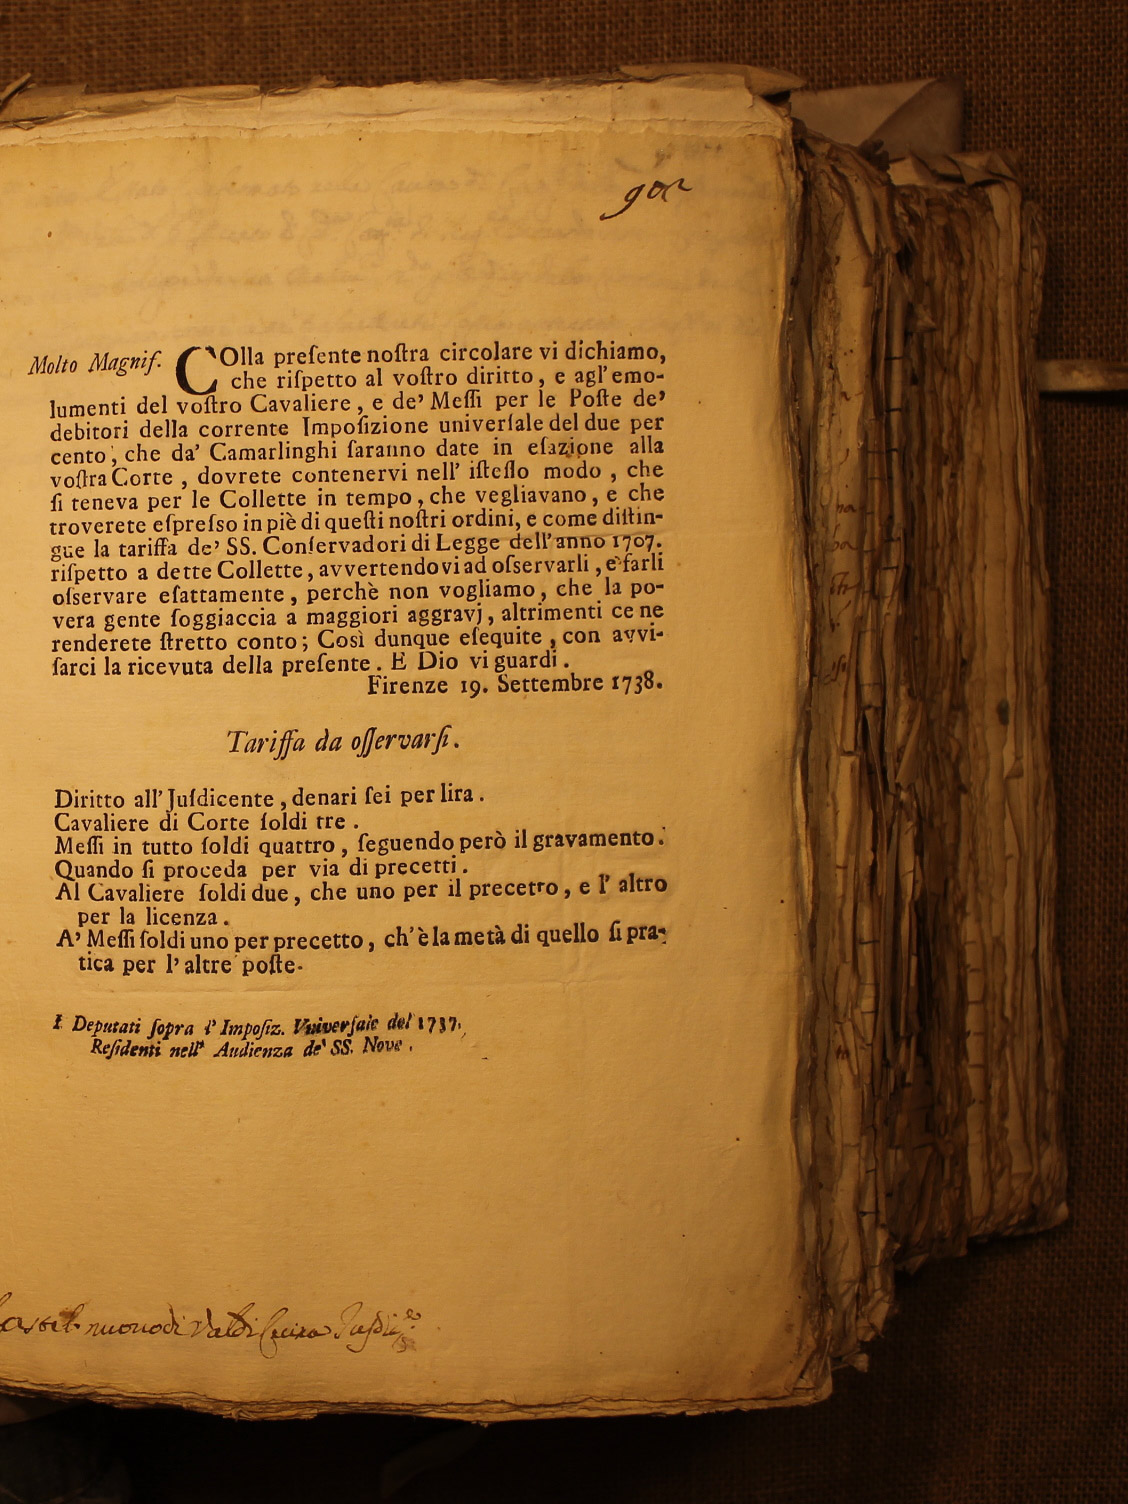 Molto Magnif. COlla preſente noſtra circolare vi dichiamo,
che riſpetto al voſtro diritto, e agl'emo-
lumenti del voſtro Cavaliere, e de' Meſſi per le Poſte de'
debitori della corrente Impoſizione univerſale del due per
cento, che da' Camarlinghi ſaranno date in eſazione alla
voſtra Corte, dovrete contenervi nell' iſteſſo modo, che
ſi teneva per le Collette in tempo, che vegliavano, e che
troverete eſpreſſo in piè di queſti noſtri ordini, e come diſtin-
gue la tariffa de' SS. Conſervadori di Legge dell'anno 1707.
riſpetto a dette Collette, avvertendovi ad oſservarli, e farli
oſservare eſattamente, perchè non vogliamo, che la po-
vera gente ſoggiaccia a maggiori aggravj, altrimenti ce ne
renderete ſtretto conto; Così dunque eſequite, con avvi-
ſarci la ricevuta della preſente. E Dio vi guardi.
Firenze 19. Settembre 1738.
Tariffa da oſſervarſi.
Diritto all' Juſdicente, denari ſei per lira.
Cavaliere di Corte ſoldi tre.
Meſſi in tutto ſoldi quattro, ſeguendo però il gravamento.
Quando ſi proceda per via di precetti.
Al Cavaliere ſoldi due, che uno per il precetto, e l' altro
per la licenza.
A' Meſſi ſoldi uno per precetto, ch'è la metà di quello ſi pra-
tica per l' altre poſte.
I Deputati ſopra l' Impoſiz. Vniverſale del 1737.
Reſidenti nell' Audienza de' SS. Nove.
nuovo di Valdi